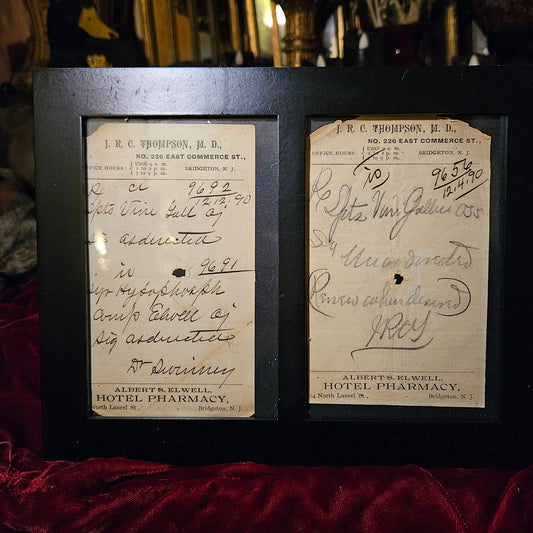 J. R. C. THOMPSON, M. D.,
NO. 236 EAST COMMERCE ST.,
OFFICE HOURS: { Until 9 a. m. 1 to 3 p. m. 7 to 9 p. m.
BRIDGETON, N. J.
9692
12.12.90
Vini Gall
as directed
9691
Syr Hypophosph
Comp Elwell
Sig as directed
Dr Swinney
ALBERT S. ELWELL,
HOTEL PHARMACY,
North Laurel St., Bridgeton, N. J.
J. R. C. THOMPSON, M. D.,
NO. 236 EAST COMMERCE ST.,
OFFICE HOURS: { Until 9 a. m. 1 to 3 p. m. 7 to 9 p. m.
BRIDGETON, N. J.
70
9656
12.4.90
Vini
Sig Use as directed
(Renew when desired)
JRCT
ALBERT S. ELWELL,
HOTEL PHARMACY,
North Laurel St., Bridgeton, N. J.